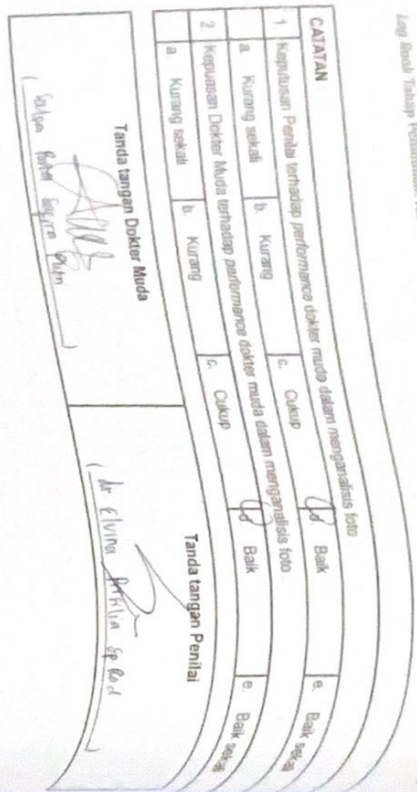 Log Book Tahap
CATATAN :
1 Keputusan Penilai terhadap performance dokter muda dalam menganalisis foto
a. Kurang sekali b. Kurang c. Cukup d Baik e. Baik sekali
2 Kepuasan Dokter Muda terhadap performance dokter muda dalam menganalisis foto :
a. Kurang sekali b. Kurang c. Cukup d Baik e. Baik sekali
Tanda tangan Dokter Muda Tanda tangan Penilai
( ) ( dr. Elvina Sp Rad )